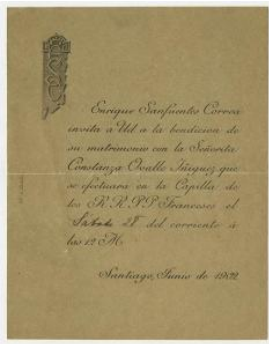 Enrique Sanfuentes Correa
invita a Ud a la bendicion de
su matrimonio con la Señorita
Constanza Ovalle Iñiguez que
se efectuará en la Capilla de
los R.R.P.P. Franceses el
Sábado 28 del corriente á
las 12 M.
Santiago, Junio de